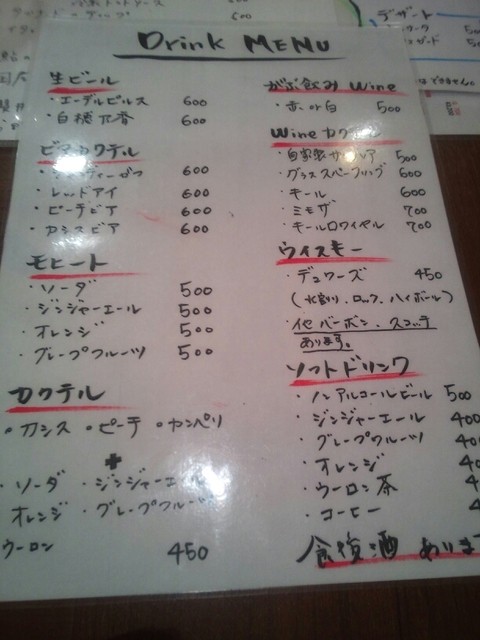 Drink MENU
生ビール
・エーデルピルス 600
・白穂乃香 600
ビアカクテル
600
・レッドアイ 600
・ピーチビア 600
・カシスビア 600
モヒート
・ソーダ 500
・ジンジャーエール 500
・オレンジ 500
・グレープフルーツ 500
カクテル
・カシス ・ピーチ ・カンパリ
+
・ソーダ ・ジンジャーエール
オレンジ ・グレープフルーツ
ウーロン 450
がぶ飲み Wine
・赤 or 白 500
Wine カクテル
・自家製サングリア 500
・グラス スパークリング 600
・キール 600
・ミモザ 700
・キールロワイヤル 700
ウイスキー
・デュワーズ 450
(水割り、ロック、ハイボール)
・他 バーボン、スコッチ
あります。
ソフトドリンク
・ノンアルコールビール 500
・ジンジャーエール 400
・グレープフルーツ 400
・オレンジ 40
・ウーロン茶 4
・コーヒー 4
食後酒 ありま
デザート